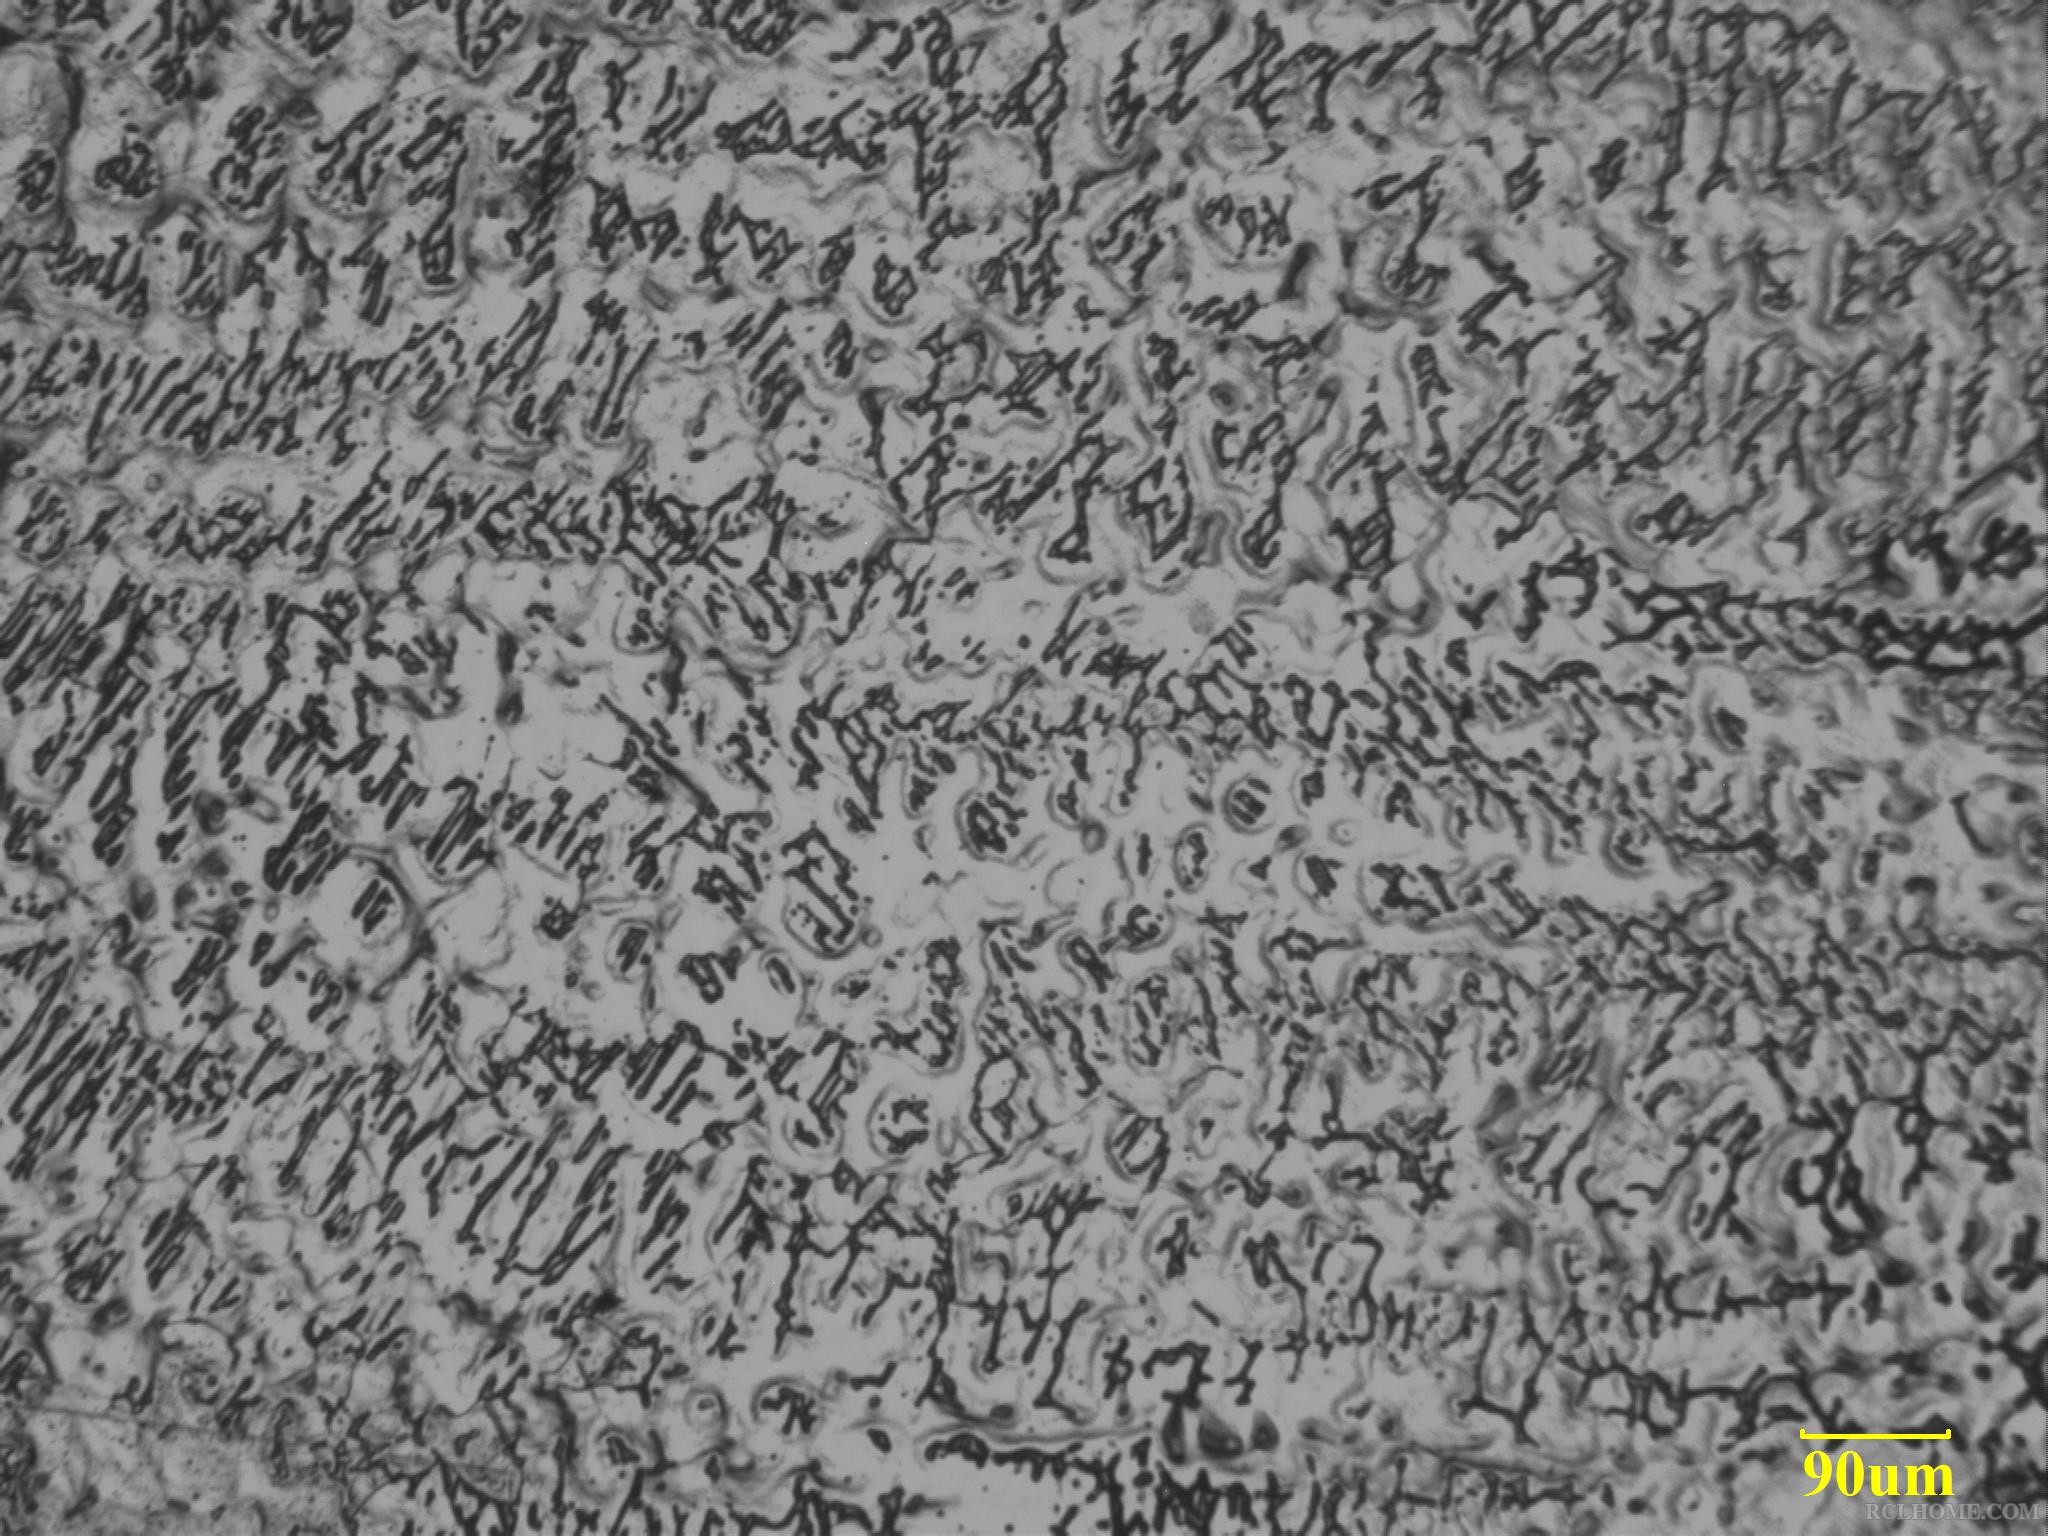 90um
RCLHOME.COM